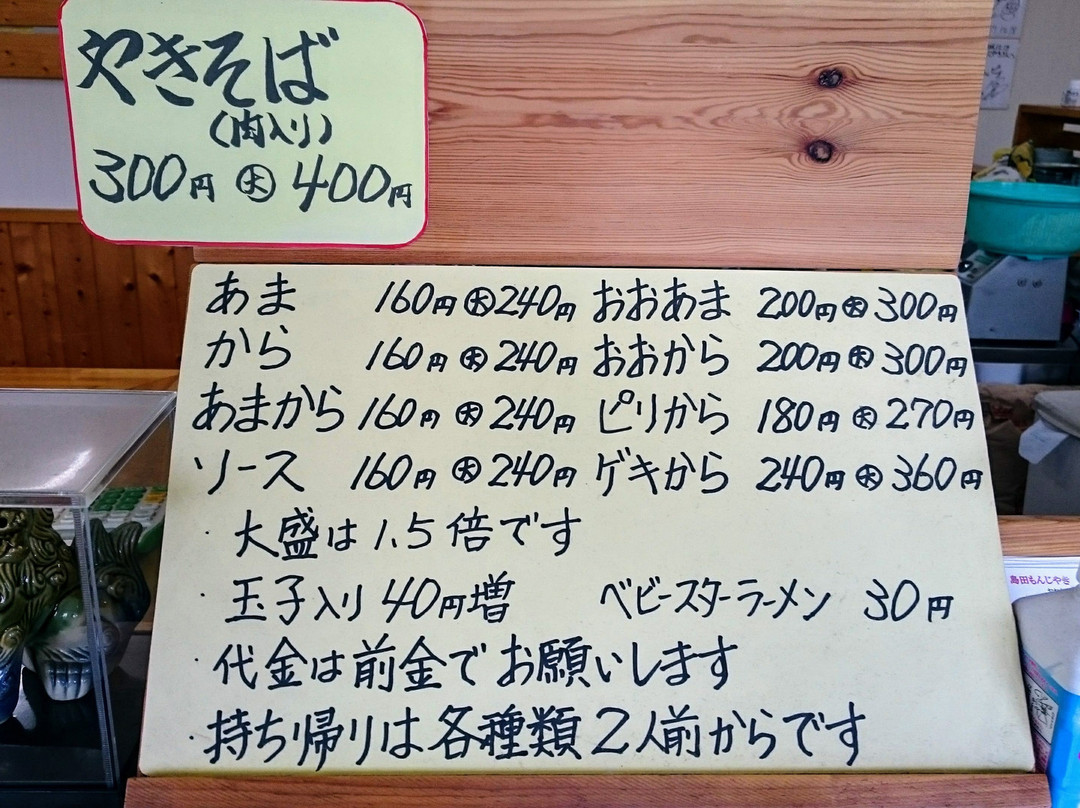 やきそば
(肉入り)
300円 大 400円
あま 160円 大 240円 おおあま 200円 大 300円
から 160円 大 240円 おおから 200円 大 300円
あまから 160円 大 240円 ピリから 180円 大 270円
ソース 160円 大 240円 ゲキから 240円 大 360円
・大盛は1.5倍です
・玉子入り40円増 ベビースターラーメン 30円
・代金は前金でお願いします
・持ち帰りは各種類2人前からです
島田もんじやき